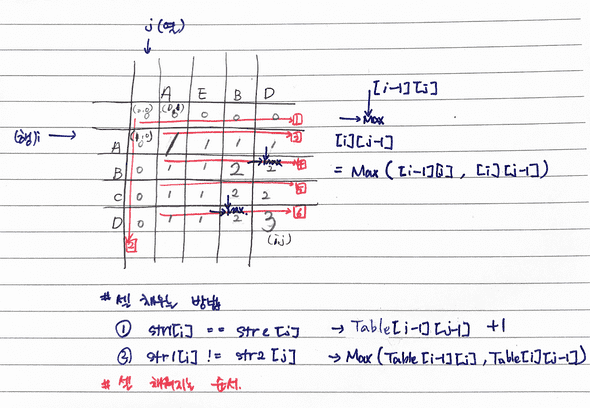 j (열)
A E B D
[i-1][j]
(0,0) 0 (0,1) 0 0 0 0 1
Max
(행)i
(1,0) 0
3
[i][j-1]
A / 1 1 1
B 0 1 1 2 2 Max 4
= Max ( [i-1][j] , [i][j-1] )
C 0 1 1 2 2 5
D 0 1 1 Max. 2 3 6
2
(i,j)
# 셀 채우는 방법
① str1[i] == str2[j] → Table[i-1][j-1] +1
② str1[i] != str2[j] → Max(Table[i-1][j], Table[i][j-1])
# 셀 채워지는 순서.